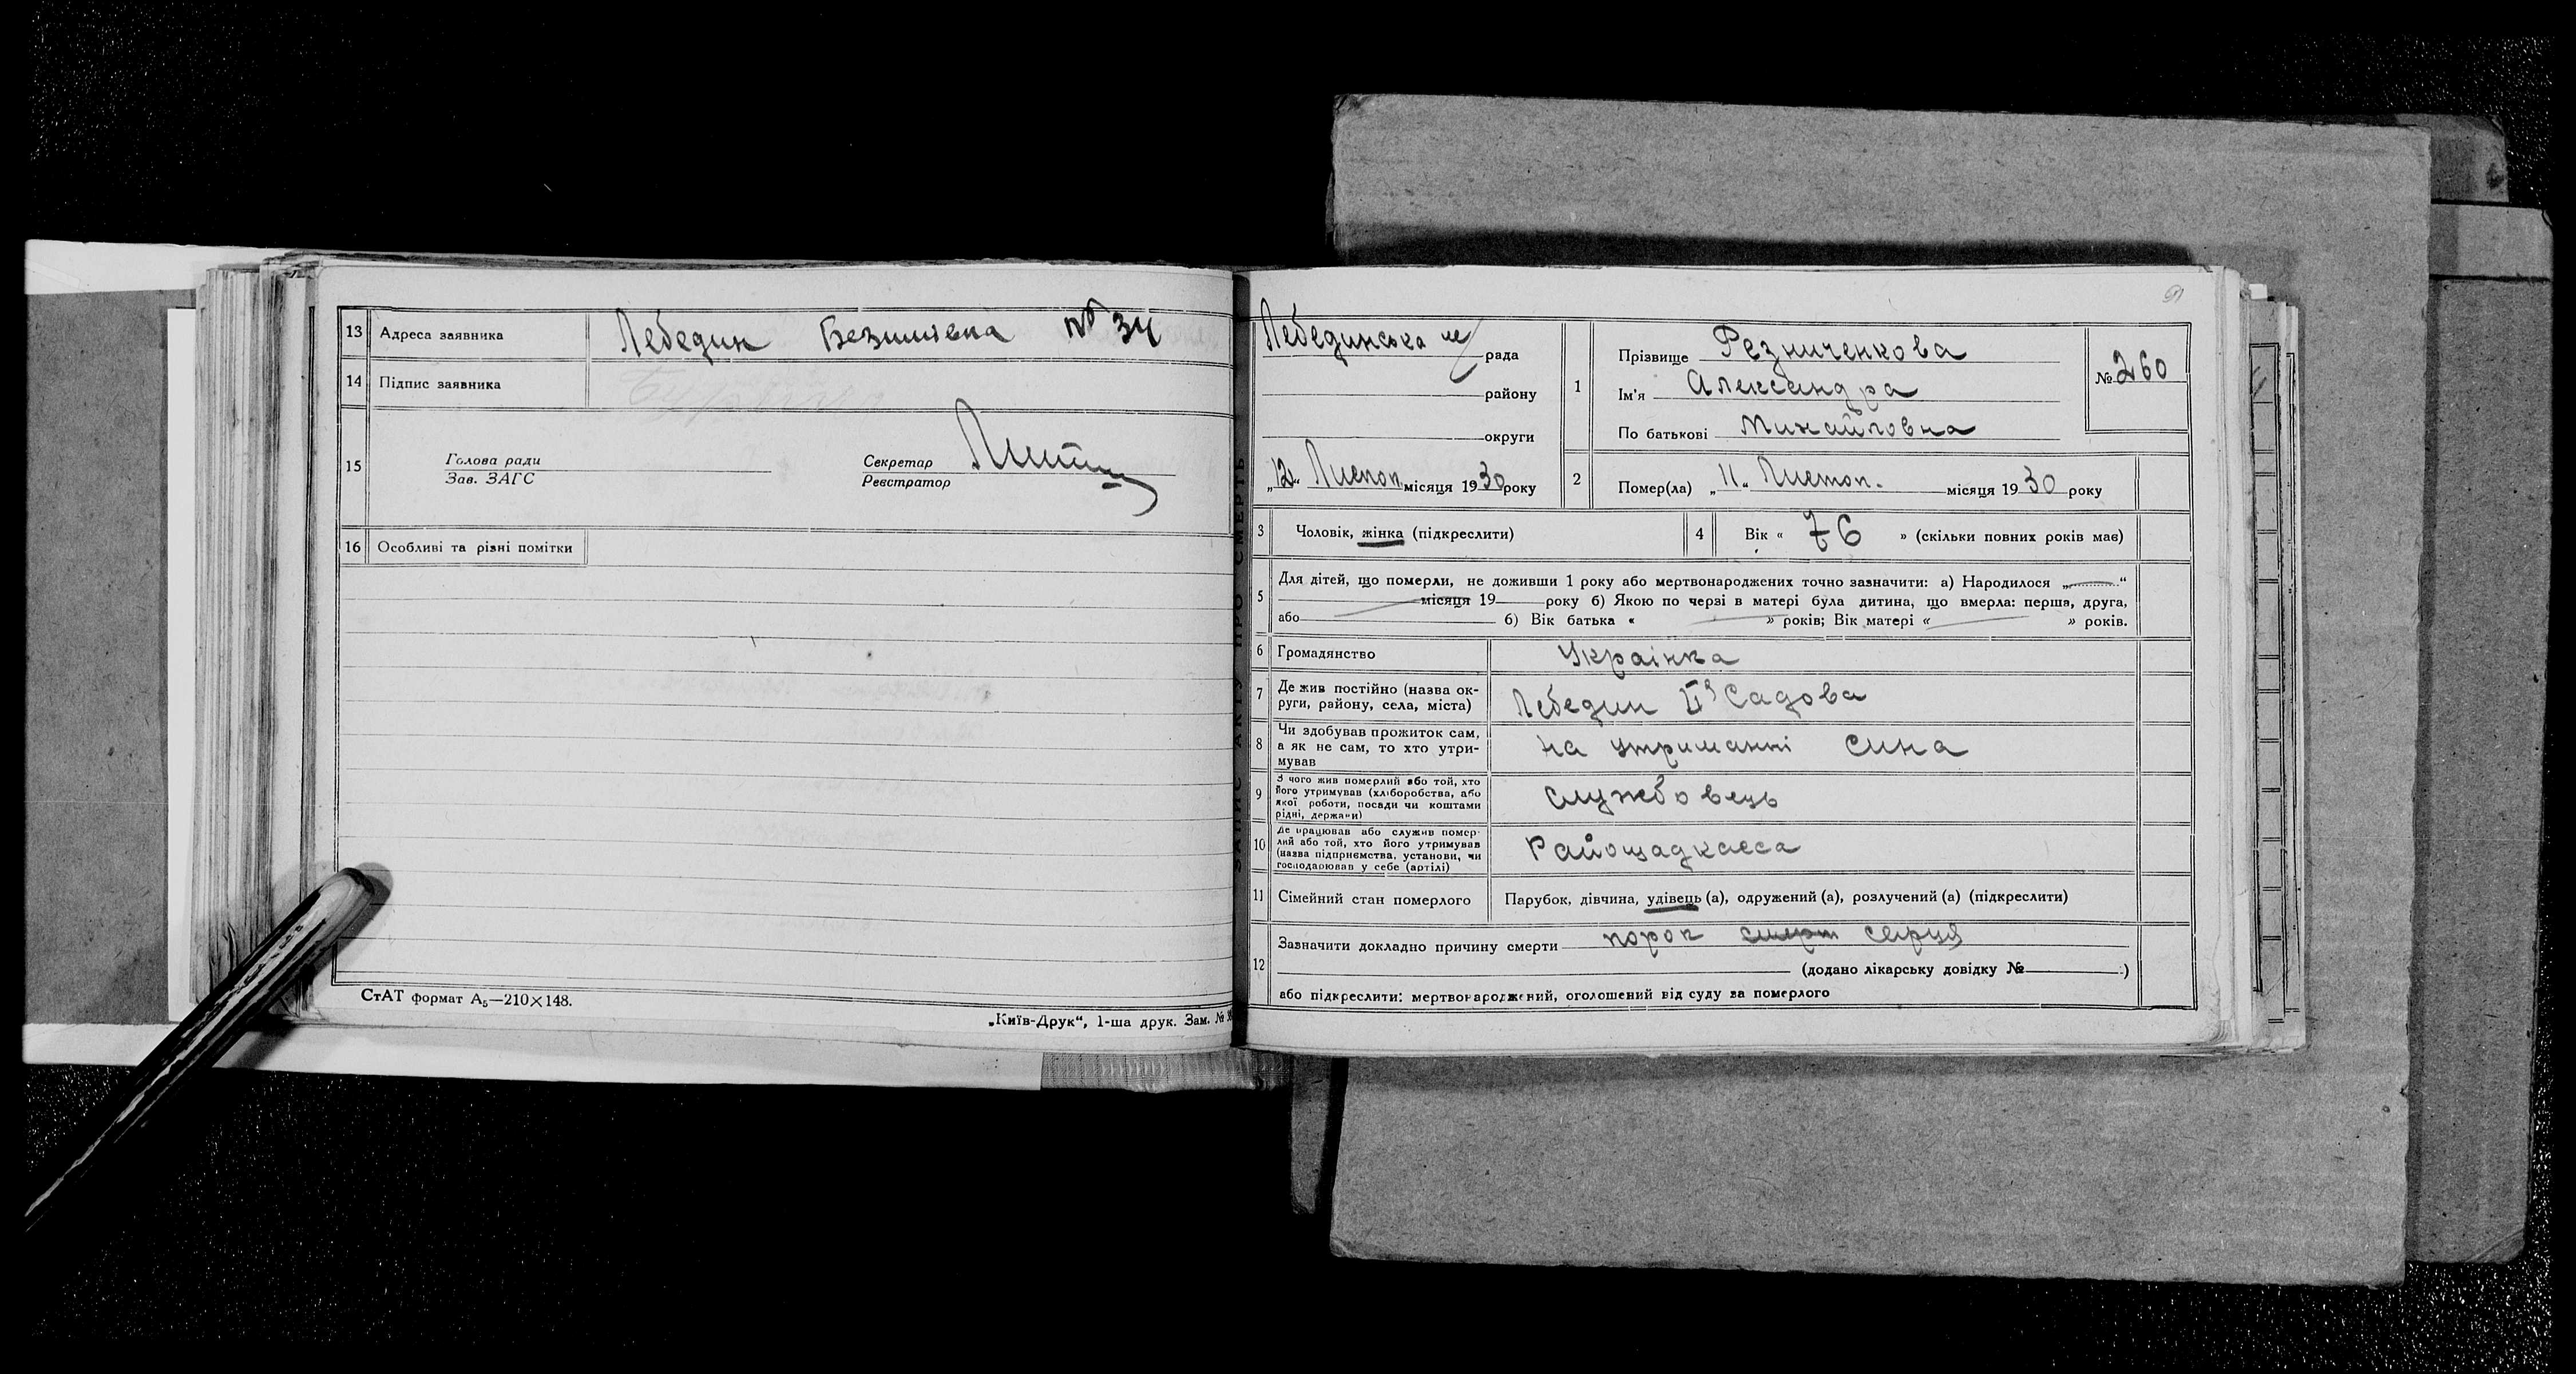 13 Адреса заявника Лебедин Безимівка № 34
14 Підпис заявника
15
Голова ради
Зав. ЗАГС
Секретар
Реєстратор
16 Особливі та різні помітки
СтАТ формат А₅—210×148.
„Київ-Друк“, 1-ша друк. Зам. №
ЗАПИС АКТУ ПРО СМЕРТЬ
Лебединська рада
району
округи
„12“ Листоп місяця 1930 року
1 Прізвище Резниченкова
Ім'я Александра
По батькові Михайловна
№ 260
2 Помер(ла) „11“ Листоп. місяця 1930 року
3 Чоловік, жінка (підкреслити)
4 Вік « 76 » (скільки повних років має)
5 Для дітей, що померли, не доживши 1 року або мертвонароджених точно зазначити: а) Народилося „ “
місяця 19 року б) Якою по черзі в матері була дитина, що вмерла: перша, друга,
або 6) Вік батька « » років; Вік матері « » років.
6 Громадянство Украінка
7 Де жив постійно (назва ок-
руги, району, села, міста) Лебедин ІІ Садова
8 Чи здобував прожиток сам,
а як не сам, то хто утри-
мував на утриманні сина
9 З чого жив померлий або той, хто
його утримував (хліборобства, або
якої роботи, посади чи коштами
рідні, держави) службовець
10 Де працював або служив помер-
лий або той, хто його утримував
(назва підприємства, установи, чи
господарював у себе (артілі) Райощадкасса
11 Сімейний стан померлого Парубок, дівчина, удівець (а), одружений (а), розлучений (а) (підкреслити)
12 Зазначити докладно причину смерти порок смерт серця
(додано лікарську довідку № )
або підкреслити: мертвонароджений, оголошений від суду за померлого